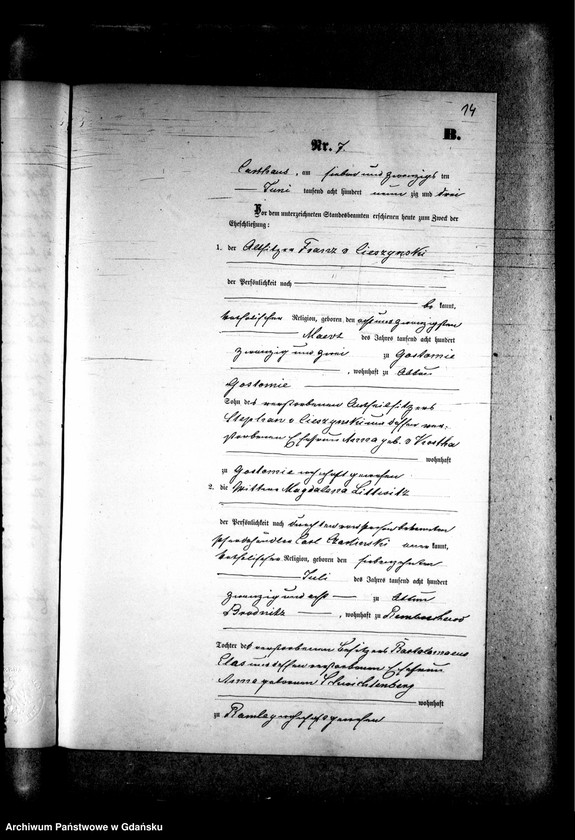 14
B.
Nr. 7.
Carthaus, am sieben und zwanzigs ten
Juni tausend acht hundert neun zig und drei
Vor dem unterzeichneten Standesbeamten erschienen heute zum Zweck der
Eheschließung:
1. der Altsitzer Franz v Cieszynski
der Persönlichkeit nach
be kannt,
katholischer Religion, geboren den acht und zwanzigsten
Maerz des Jahres tausend acht hundert
zwanzig und zwei zu Gostomie
, wohnhaft zu Abbau
Gostomie
Sohn des verstorbenen Antheilsitzers
Stephan v Cieszynski und dessen ver-
storbenen Ehefrau Anna geb.
wohnhaft
zu Gostomie wohnhaft gewesen
2. die Wittwe Magdalena Littwitz
der Persönlichkeit nach durch den von Person bekannten
Pferdehändler Carl aner kannt,
katholischer Religion, geboren den siebenzehnten
Juli des Jahres tausend acht hundert
zwanzig und acht zu Abbau
Brodnitz , wohnhaft zu
Tochter des verstorbenen Besitzers Bartolomaeus
und dessen verstorbenen Ehefrau
Anna geborenen Schwichtenberg
wohnhaft
zu Ramley wohnhaft gewesen
Archiwum Państwowe w Gdańsku